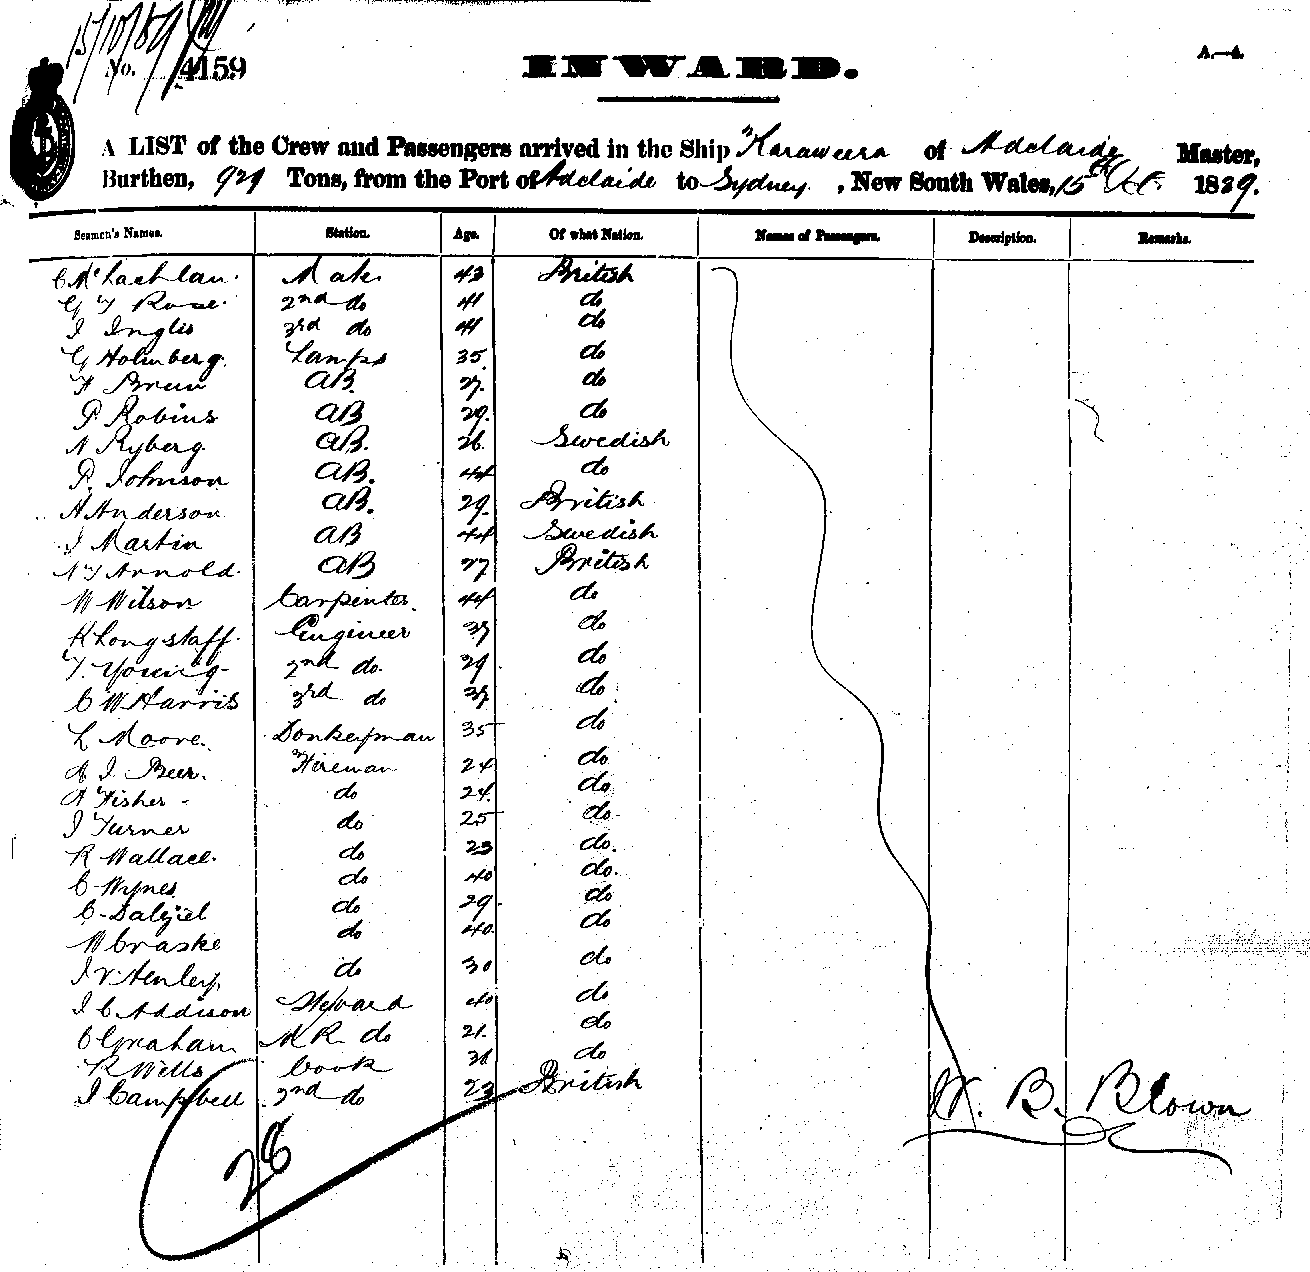 15/10/89
No. 4159
INWARD.
A.—4.
A LIST of the Crew and Passengers arrived in the Ship "Karaweera of Adelaide Master,
Burthen, 929 Tons, from the Port of Adelaide to Sydney , New South Wales, 15th Oct 1889.
Seamen's Names. Station. Age. Of what Nation. Names of Passengers. Description. Remarks.
C McLachlan Mate 43 British
G T Rose 2nd do 41 do
J Inglis 3rd do 41 do
G Holmberg Lamps 35 do
AB 27 do
P Robins AB 29 do
A Ryberg AB. 26 Swedish
P. Johnson AB. 44 do
A Anderson AB. 29 British
J Martin AB 44 Swedish
Arnold AB 27 British
W Wilson Carpenter 44 do
R Longstaff Engineer 39 do
T. Young 2nd do 29 do
C W Harris 3rd do 39 do
L Moore Donkeyman 35 do
A J Beer. Fireman 24 do
A Fisher do 24 do
J Turner do 25 do
R Wallace do 23 do.
C Wynes do 40 do.
C Dalziel do 29 do
W Craske do 40 do
J V Henley do 30 do
J C Addison Steward 40 do
C Graham do 21 do
R Wells Cook 31 do
J Campbell 2nd do 23 British
28
W. B. Blown